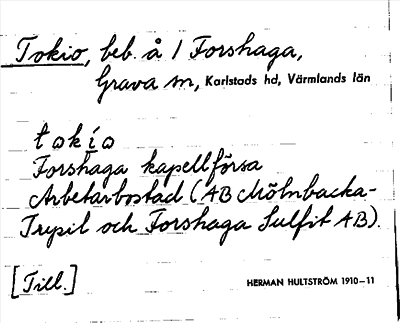 Tokio, beb. å 1 Forshaga,
Grava sn, Karlstads hd, Värmlands län
tωkíω
Forshaga kapellförsa
Arbetarbostad (AB Mölnbacka-
Trysil och Forshaga Sulfit AB).
[Till.]
HERMAN HULTSTRÖM 1910–11